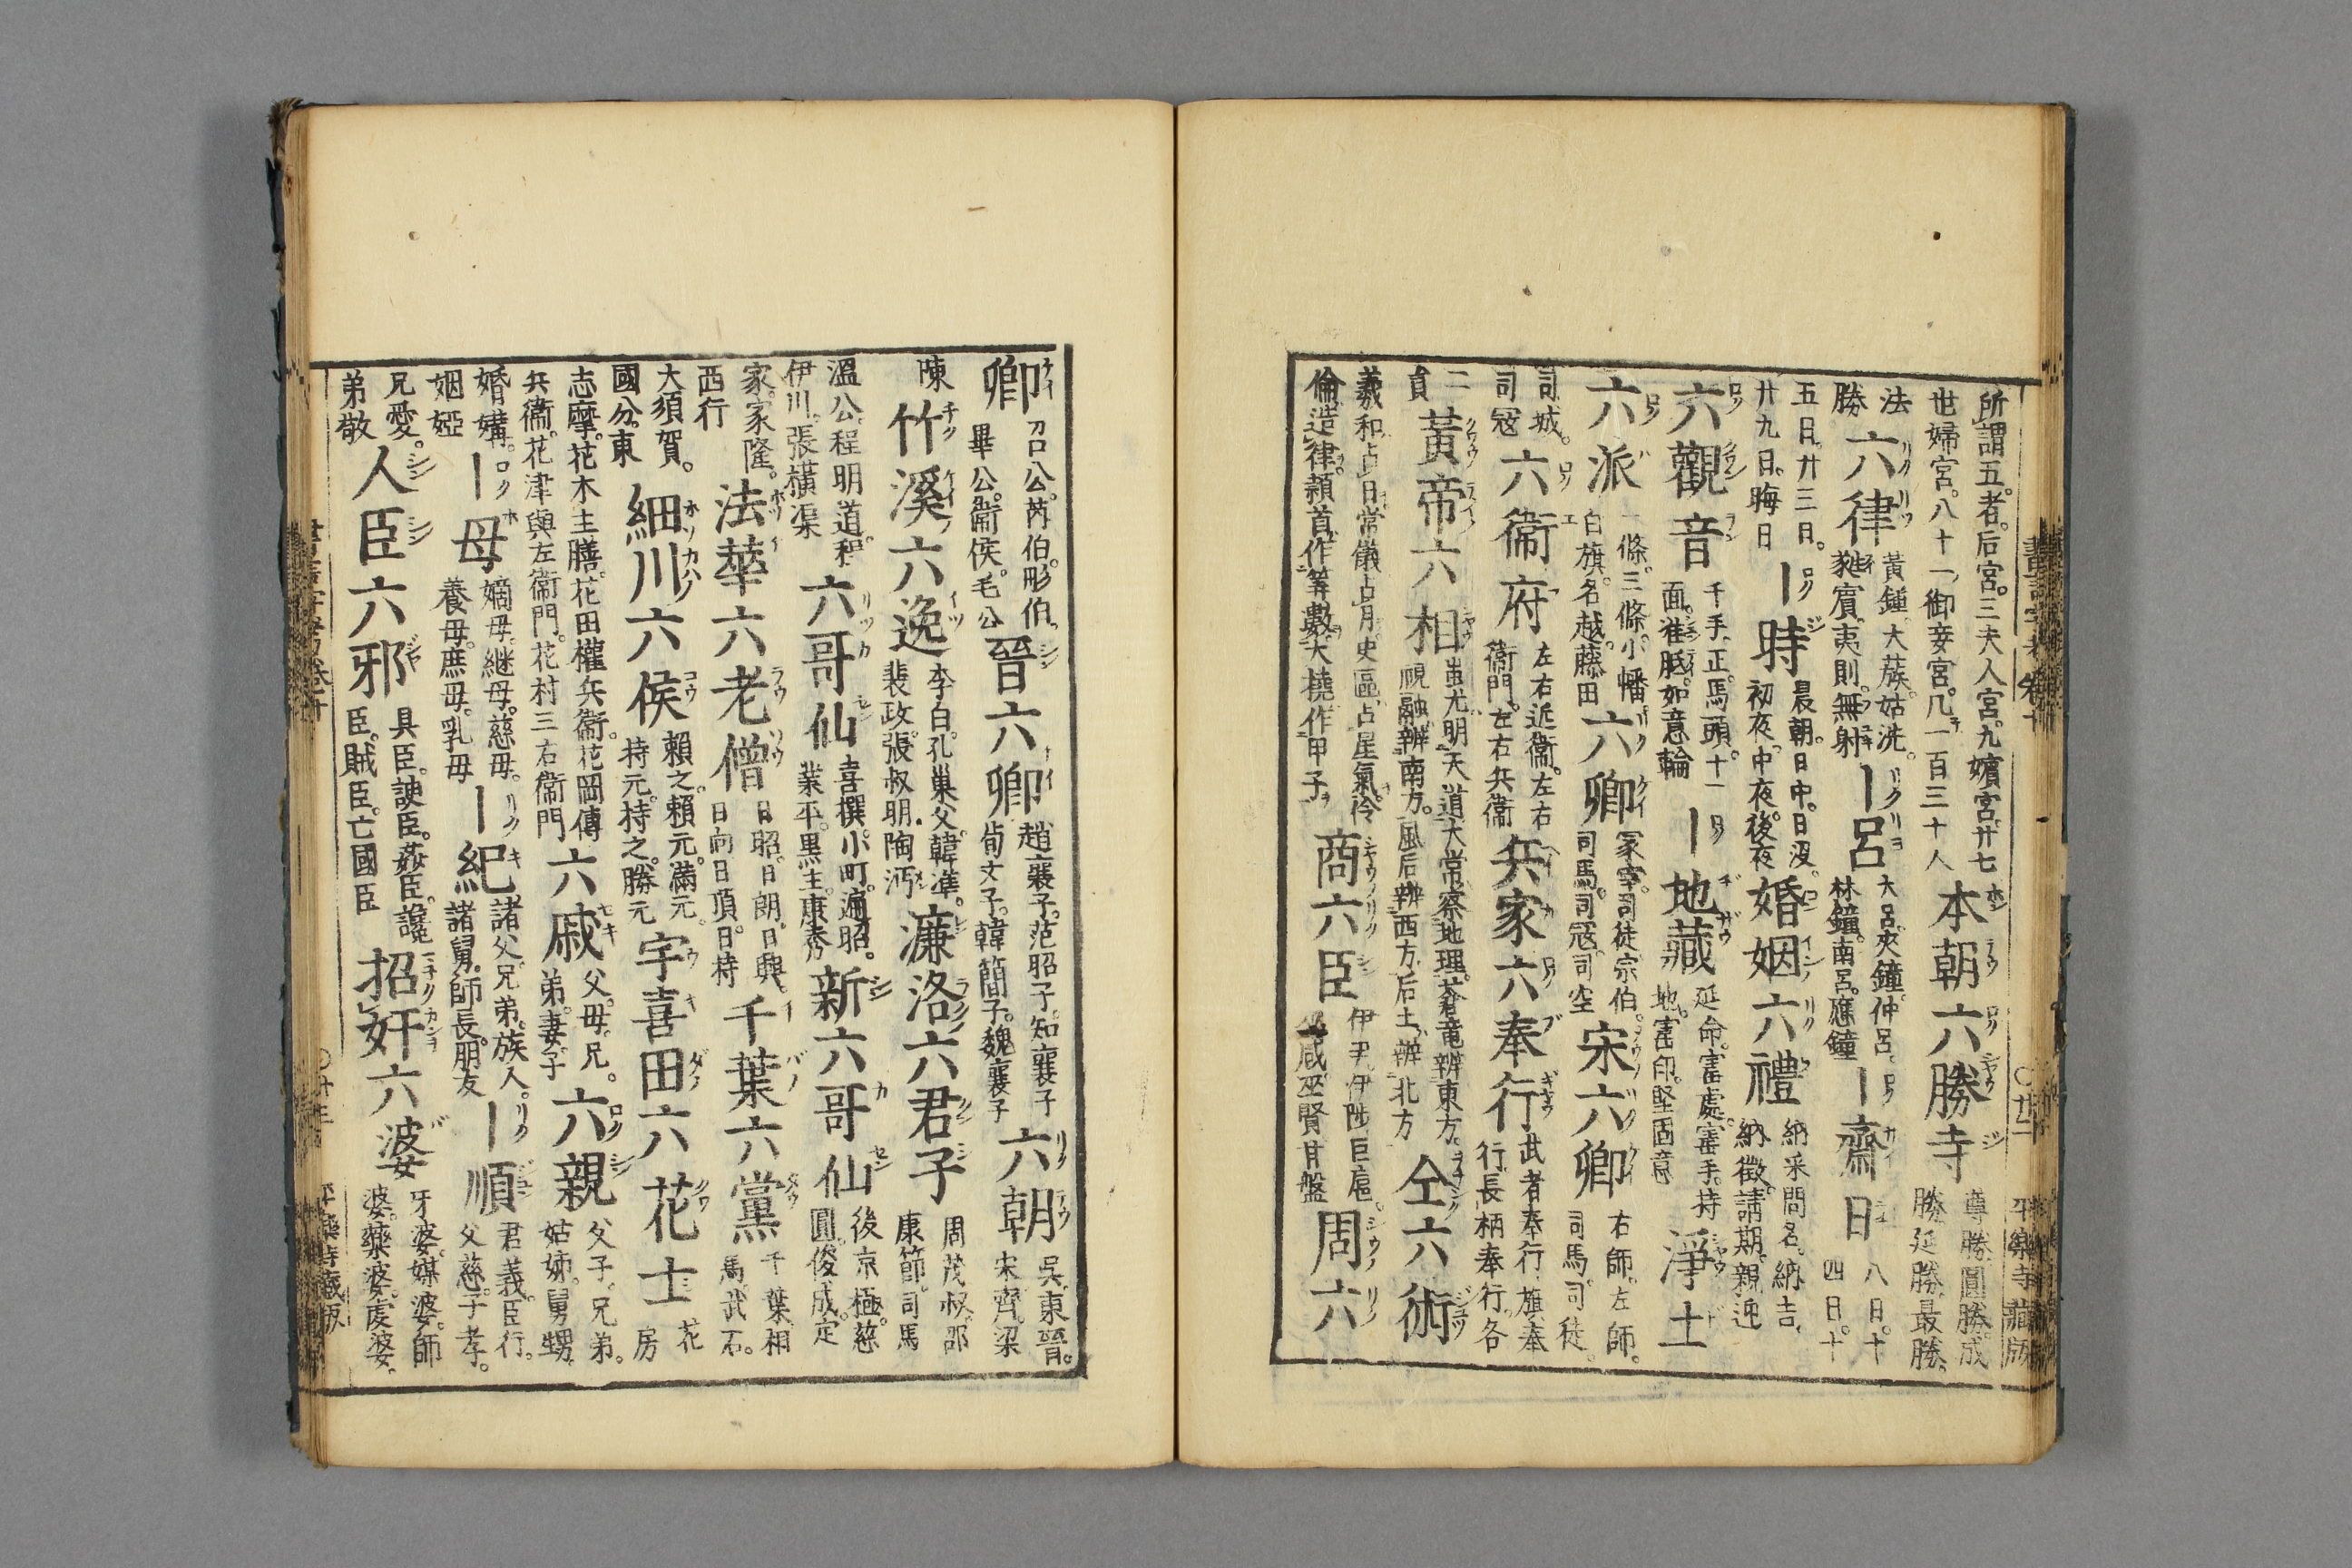 所謂五者。后宮。三夫人宮。九嬪宮。廿七
世婦宮。八十一御妾宮。凡一百三十人
本朝六勝寺
尊勝。圓勝。成
勝。延勝。最勝。
法
勝
六律
黃鍾。大蔟。姑洗。
蕤賓。夷則。無射
｜呂
大呂。夾鐘。仲呂。
林鐘。南呂。應鐘
｜齋日
八日。十
四日。十
五日。廿三日。
廿九日。晦日
｜時
晨朝。日中。日沒。
初夜。中夜。後夜
婚姻六禮
納采。問名。納吉。
納徵。請期。親迎
六觀音
千手。正。馬頭。十一
面。准胝。如意輪
｜地藏
延命。寳處。寳手。持
地。寳印。堅固意
淨土
六派
一條。三條。小幡。
白旗。名越。藤田
六卿
冢宰。司徒。宗伯。
司馬。司冦。司空
宋六卿
右師。左師。
司馬。司徒。
司城。
司冦
六衞府
左右近衞。左右
衞門。左右兵衞
兵家六奉行
武者奉行。旗奉
行。長柄奉行。各
二
員
黃帝六相
蚩尤明天道。大常察地理。蒼竜辨東方。
祝融辨南方。風后辨西方。后土辨北方
仝六術
羲和占日。常儀占月。史區占星氣。泠
倫造律。頴首作筭數。大橈作甲子
商六臣
伊尹。伊陟。臣扈。
巫咸。巫賢。甘盤
周六
卿
召公。芮伯。彤伯。
畢公。衞侯。毛公
晉六卿
趙襄子。范昭子。知襄子
荀文子。韓簡子。魏襄子
六朝
吳。東晉。
宋。齊。梁
陳
竹溪六逸
李白。孔巢父。韓準。
裴政。張叔明。陶沔
濂洛六君子
周茂叔。邵
康節。司馬
溫公。程明道。程
伊川。張橫渠
六哥仙
喜撰。小町。遍昭。
業平。黑主。康秀
新六哥仙
後京極。慈
圓。俊成。定
家。家隆。
西行
法華六老僧
日昭。日朗。日興。
日向。日頂。日持
千葉六黨
千葉。相
馬。武石。
大須賀。
國分。東
細川六侯
賴之。賴元。滿元。
持元。持之。勝元
宇喜田六花士
花
房
志摩。花木主膳。花田權兵衞。花岡傳
兵衞。花津與左衞門。花村三右衞門
六戚
父。母。兄。
弟。妻。子
六親
父子。兄弟。
姑姊。舅甥。
婚媾。
姻婭
｜母
嫡母。継母。慈母。
養母。庶母。乳母
｜紀
諸父。兄弟。族人。
諸舅。師長。朋友
｜順
君義。臣行。
父慈。子孝。
兄愛。
弟敬
人臣六邪
具臣。諛臣。姦臣。讒
臣。賊臣。亡國臣
招奸六婆
牙婆。媒婆。師
婆。藥婆。虔婆。
平樂寺藏版